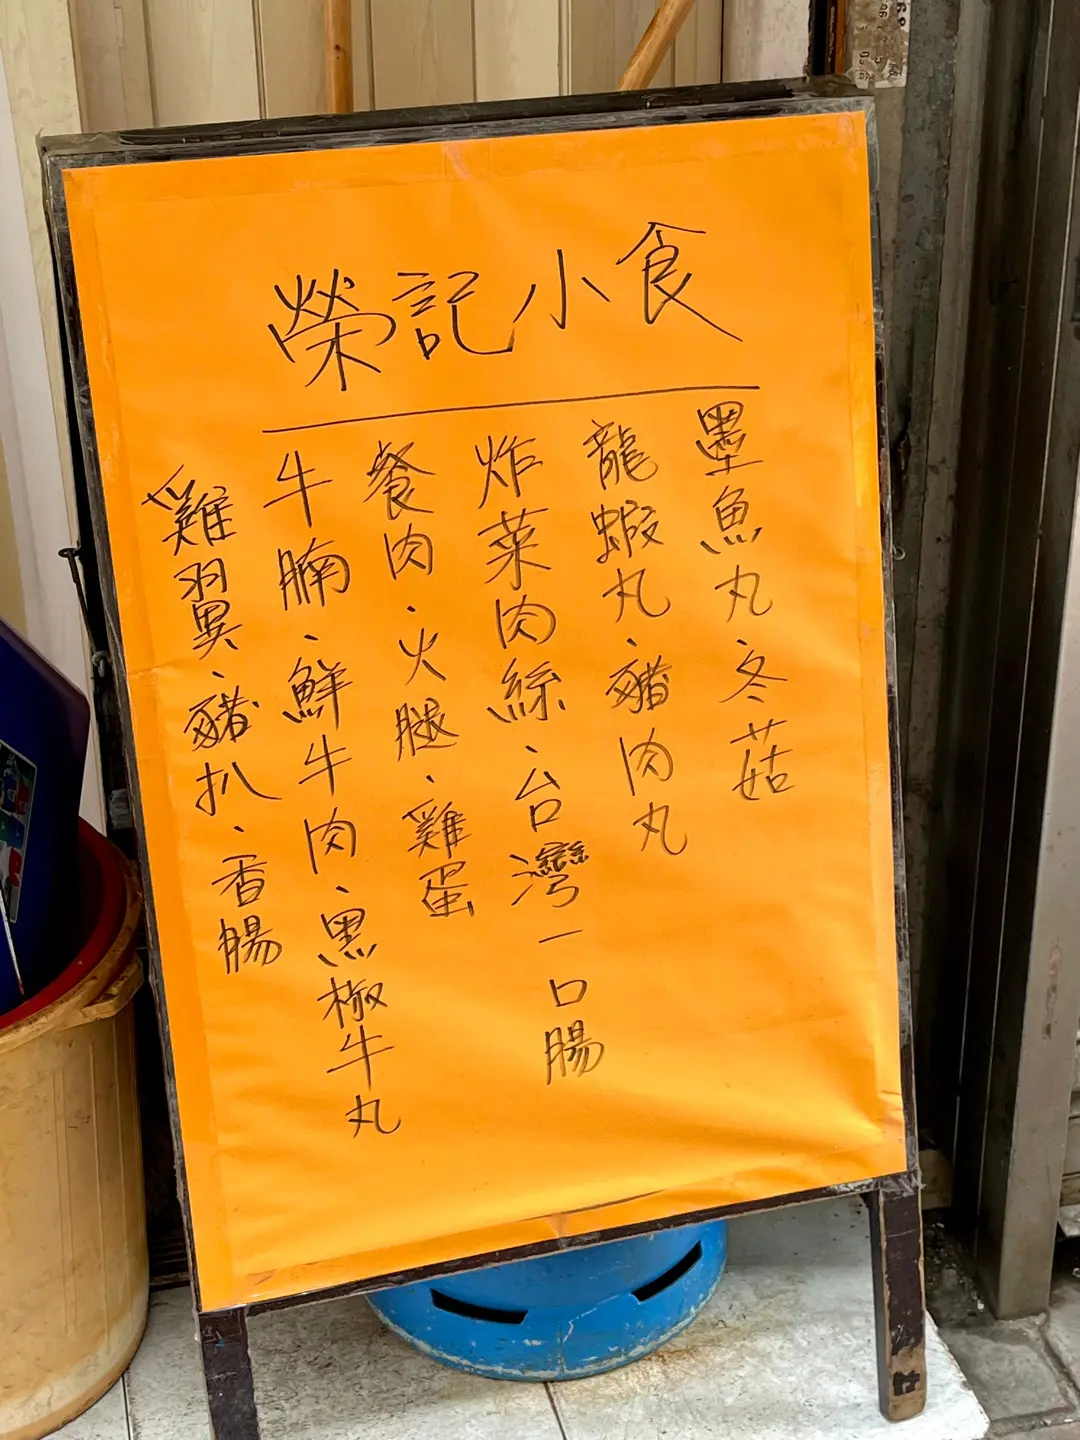 榮記小食
墨魚丸、冬菇
龍蝦丸、豬肉丸
炸菜肉絲、台灣一口腸
餐肉、火腿、雞蛋
牛腩、鮮牛肉、黑椒牛丸
雞翼、豬扒、香腸